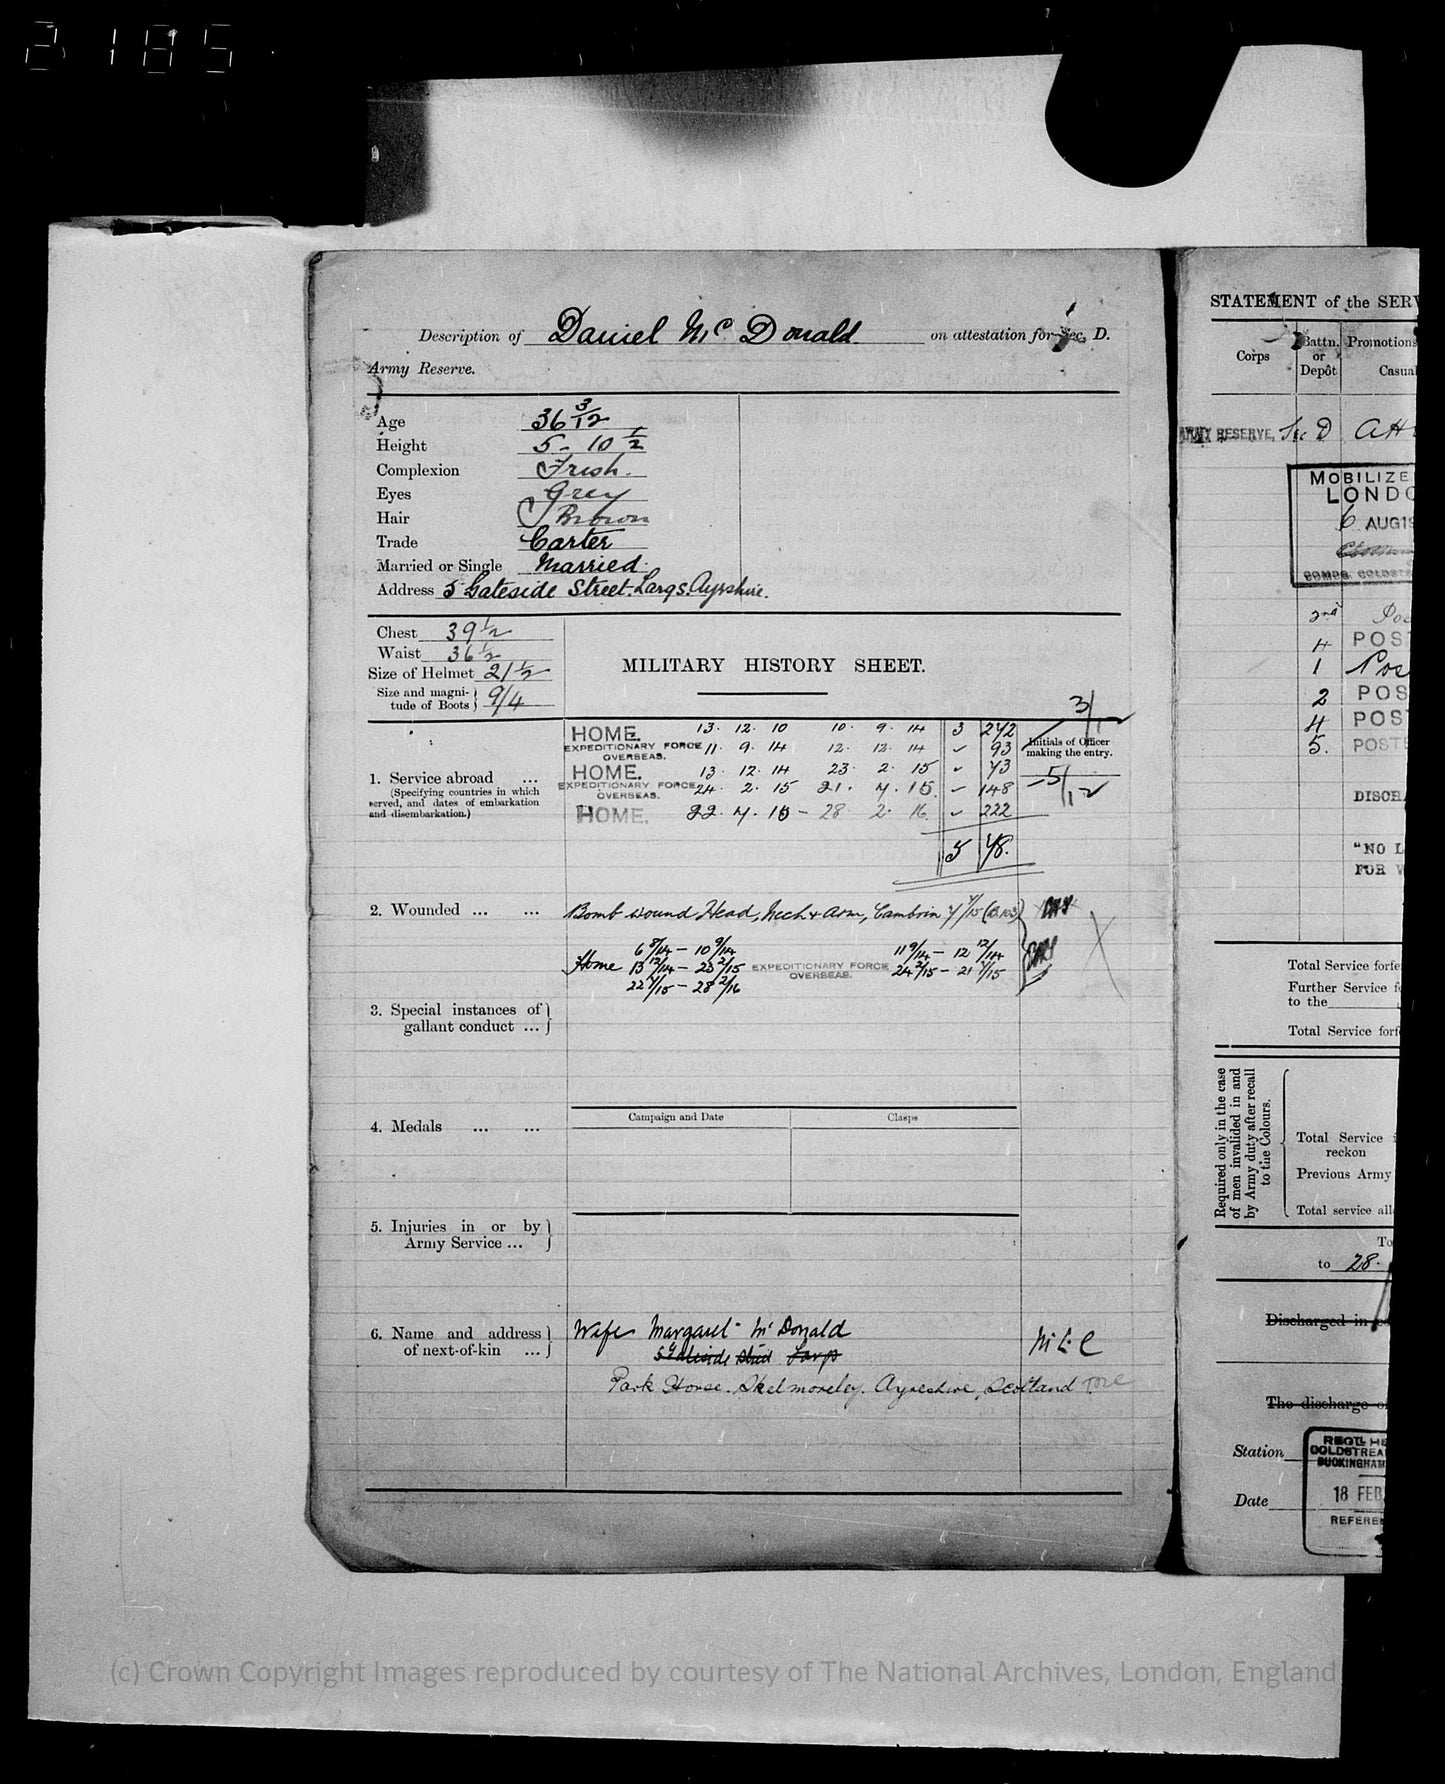 2185
Description of Daniel McDonald on attestation for Sec. D.
Army Reserve.
Age 36 3/12
Height 5 - 10 1/2
Complexion Fresh.
Eyes Grey
Hair Brown
Trade Carter
Married or Single Married.
Address 5 Gateside Street. Largs. Ayrshire.
Chest 39 1/2
Waist 36 1/2
Size of Helmet 21 1/2
Size and magni-
tude of Boots 9/4
MILITARY HISTORY SHEET.
3/12
Initials of Officer
making the entry.
5/12
1. Service abroad ...
(Specifying countries in which
served, and dates of embarkation
and disembarkation.)
HOME. 13. 12. 10 10. 9. 14 3 242
EXPEDITIONARY FORCE OVERSEAS. 11. 9. 14 12. 12. 14 - 93
HOME. 13. 12. 14 23. 2. 15 - 73
EXPEDITIONARY FORCE OVERSEAS. 24. 2. 15 21. 7. 15. - 148
HOME. 22. 7. 15 - 28 2. 16 - 222
5 48.
2. Wounded ... ... Bomb wound Head, Neck & Arm, Cambrin
Home 6 8/14 - 10 9/14
13 12/14 - 23 2/15
22 7/15 - 28 2/16
EXPEDITIONARY FORCE
OVERSEAS.
11 9/14 - 12 12/14
24 2/15 - 21 7/15
3. Special instances of
gallant conduct ...
4. Medals ... ...
Campaign and Date Clasps
5. Injuries in or by
Army Service ...
6. Name and address
of next-of-kin ...
Wife Margaret McDonald
5 Gateside Street Largs
Park House. Skelmorley. Ayreshire, Scotland
STATEMENT of the SERV
Corps Battn. or Depôt Promotions Casual
ARMY RESERVE, Sec D Att
MOBILIZE
LONDO
6 AUG 19
COMDG. COLDST
2nd
4 POS
1 Pos
2 POS
4 POS
5. POSTE
DISCH
"NO L
FOR
Total Service forfe
Further Service f
to the
Total Service forf
Required only in the case
of men invalided in and
by Army duty after recall
to the Colours.
Total Service
reckon
Previous Army
Total service all
To
to 28.
Discharged in
The discharge o
Station
REGTL HE
COLDSTREA
BUCKINGHAM
Date
18 FEB
REFEREN
(c) Crown Copyright Images reproduced by courtesy of The National Archives, London, England